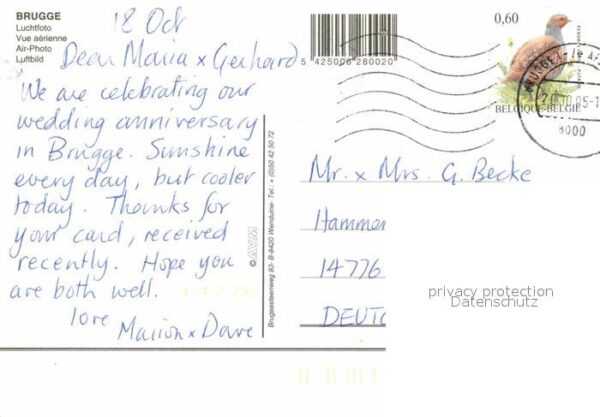 BRUGGE
Luchtfoto
Vue aérienne
Air-Photo
Luftbild
18 Oct
Dear Maria x Gerhard
We are celebrating our
wedding anniversary
in Brugge. Sunshine
every day, but cooler
today. Thanks for
your card, received
recently. Hope you
are both well.
love
Marion x Dave
5 425006 280020
© AVM
Brugsesteenweg 93- B-8420 Wenduine- Tel.: +(0)50 42 50 72
0,60
BELGIQUE-BELGIË
8000
Mr. x Mrs. G. Becke
Hammer
14776
DEUTC
14776
privacy protection
Datenschutz